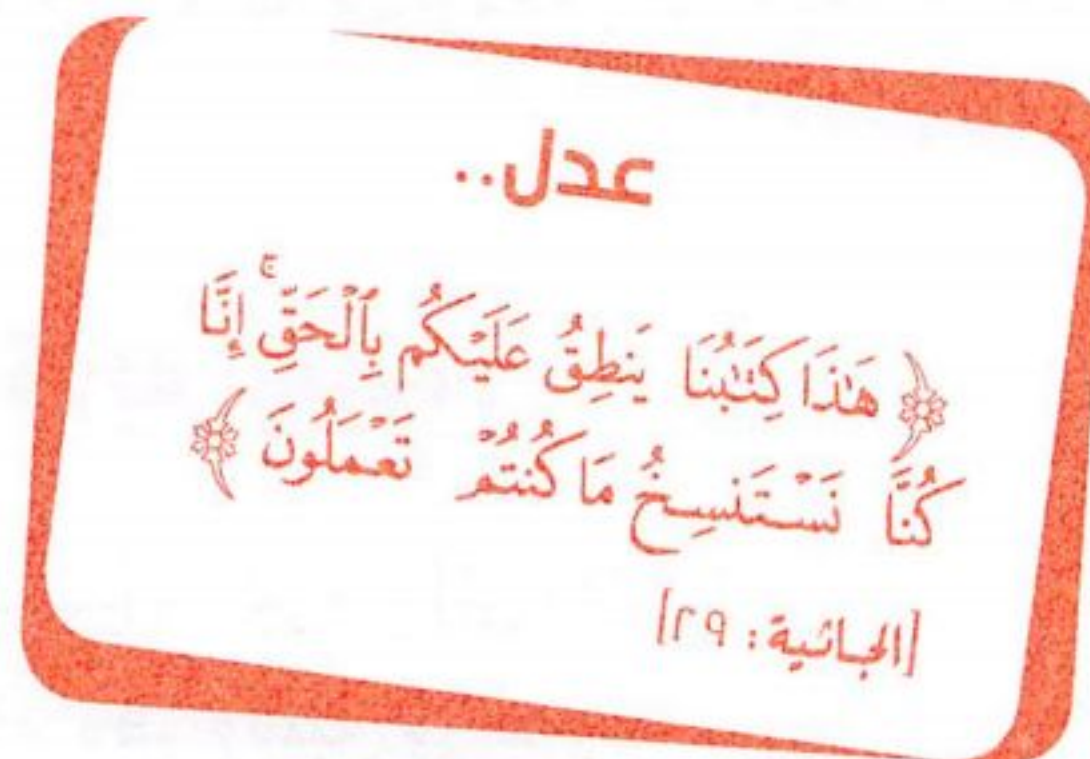 عدل..
﴿ هَٰذَا كِتَٰبُنَا يَنطِقُ عَلَيْكُم بِٱلْحَقِّ ۚ إِنَّا
كُنَّا نَسْتَنسِخُ مَا كُنتُمْ تَعْمَلُونَ ﴾
[الجاثية: ٢٩]